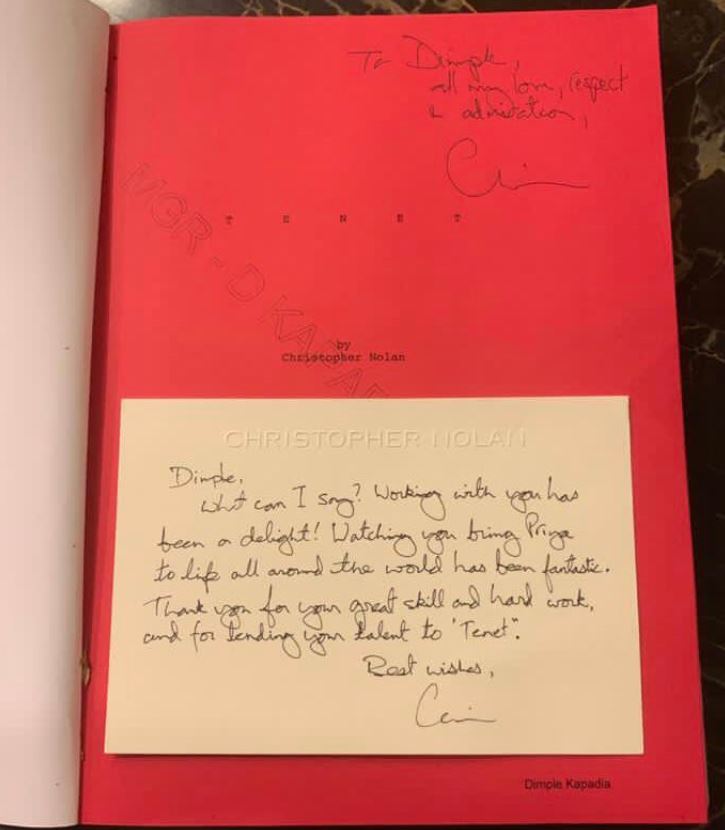 To Dimple,
all my love, respect
& admiration,
Chris
MGR - D KAPAD
T E N E T
by
Christopher Nolan
CHRISTOPHER NOLAN
Dimple,
What can I say? Working with you has
been a delight! Watching you bring Priya
to life all around the world has been fantastic.
Thank you for your great skill and hard work,
and for lending your talent to 'Tenet'.
Best wishes,
Chris
Dimple Kapadia